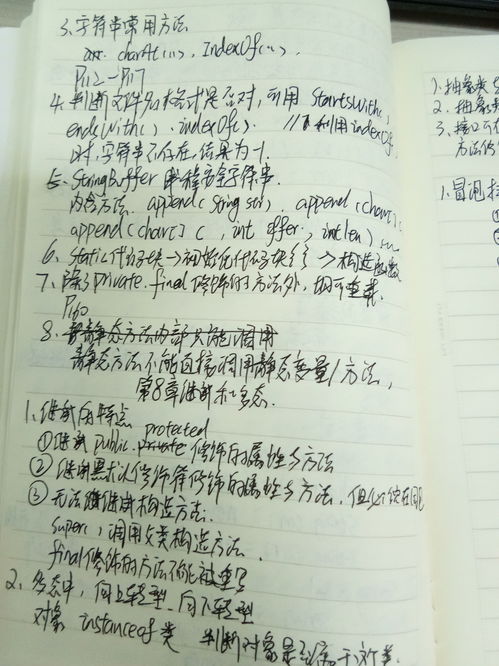 3、字符串常用方法
charAt( ), IndexOf( ).
P112—P117
4、判断文件名格式是否对,可用 StartsWith( ,
endsWith( ) . indexOf( ). //利用indexOf(
时,字符串不存在,结果为-1.
5、StringBuffer 线程安全字符串.
内含方法. append(String str) , append(char[] c
append(char[] c , int offer, int len) .
6、Static代码块→初始化代码块{ } →构造函数
7、除了private. final修饰的方法外,均可重载.
P160
8、
静态方法不能直接调用静态变量/方法,
第8章继承和多态.
1、继承的特点 protected
①继承 public. private 修饰的属性与方法
②继承默认修饰符修饰的属性与方法,但必须在同
③无法继承构造方法.
super( ) 调用父类构造方法.
final修饰的方法不能被重写
2、多态中,向上转型.向下转型
对象 instanceof 类 判断对象是否属于该类.
1、抽象类
2、抽象
3、接口可
方法
1、